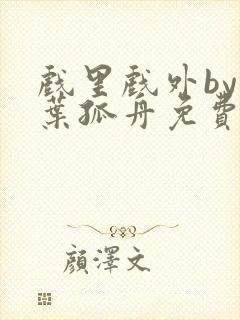 戲里戲外by
葉孤舟免費
顏澤文